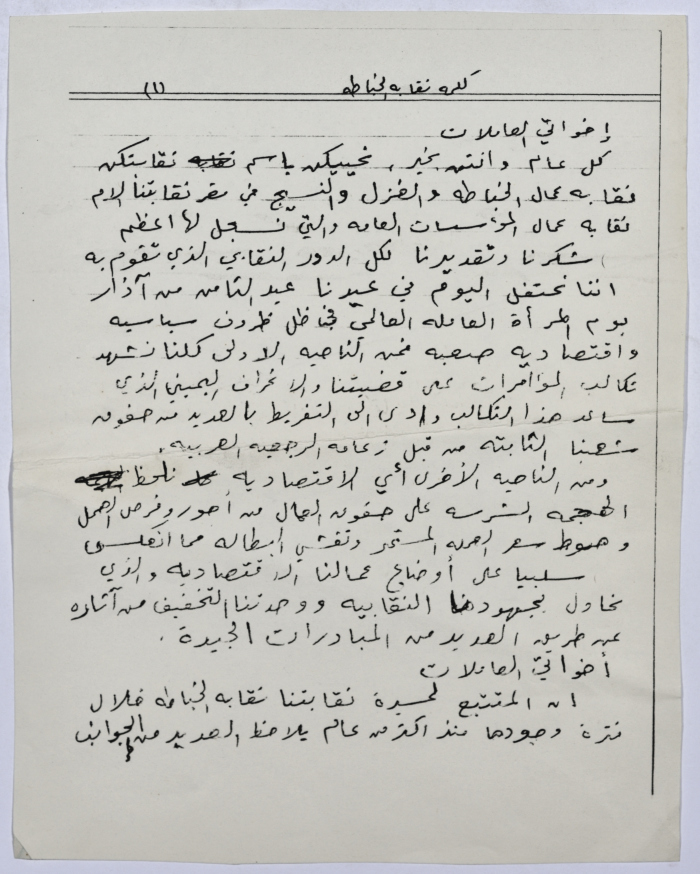 كلمة نقابه الخياطه (١)
إخواتي العاملات
كل عام وانتن بخير، نحييكن باسم نقابتكن
نقابه عمال الخياطه والغزل والنسيج في مقر نقابتنا الام
نقابه عمال المؤسسات العامه والتي نسجل لها اعظم
شكرنا وتقديرنا لكل الدور النقابي الذي تقوم به
اننا نحتفل اليوم في عيدنا عيد الثامن من آذار
يوم المرأة العامله العالمي في ظل ظروف سياسيه
واقتصاديه صعبه فمن الناحيه الاولى كلنا نشهد
تكالب المؤامرات على قضيتنا والانحراف اليميني الذي
ساعد هذا التكالب وادى الى التفريط بالعديد من حقوق
شعبنا الثابته من قبل زعامه الرجعيه العربيه.
ومن الناحيه الأخرى أي الاقتصاديه نلاحظ
الهجمه الشرسه على حقوق العمال من أجور وفرص العمل
وهبوط سعر العمله المستمر وتفشي البطاله مما انعكس
سلبيا على أوضاع عمالنا الاقتصاديه والذي
نحاول بجهودنا النقابيه ووحدتنا التخفيف من آثاره
عن طريق العديد من المبادرات الجيدة.
أخواتي العاملات
ان المتتبع لمسيرة نقابتنا نقابه الخياطه خلال
فترة وجودها منذ اكثر من عام يلاحظ العديد من الجوانب